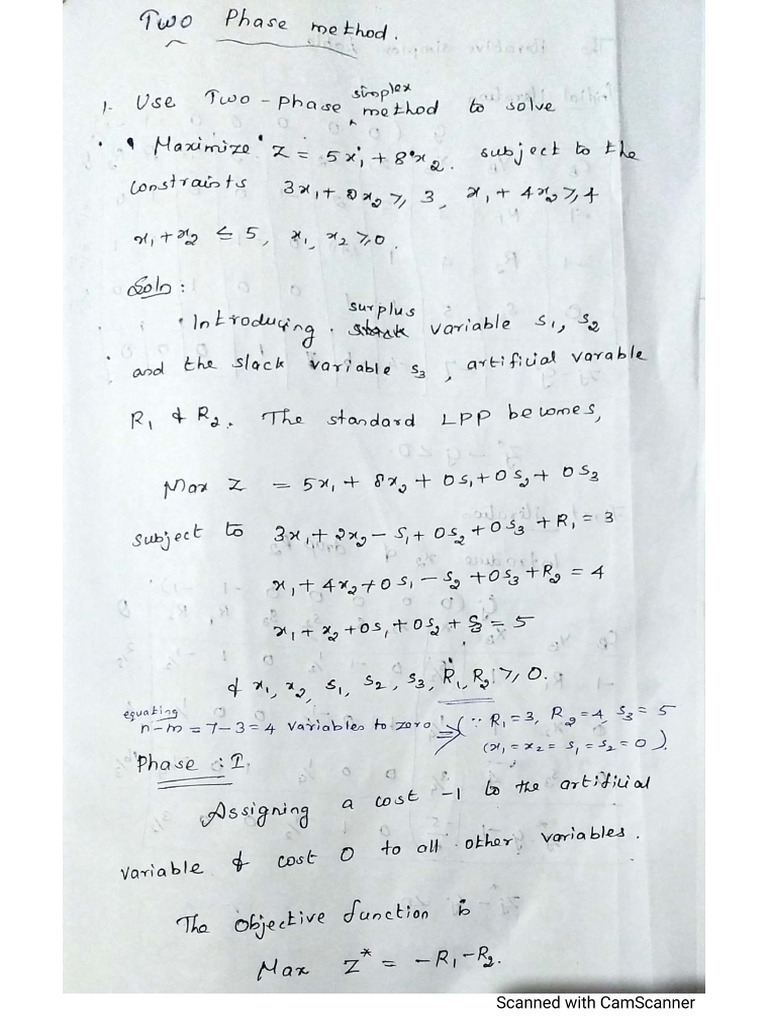 Two Phase method.
1. Use Two-phase simplex method to solve
Maximize Z = 5x₁ + 8x₂. subject to the
constraints 3x₁ + 2x₂ ≥ 3, x₁ + 4x₂ ≥ 4
x₁ + x₂ ≤ 5, x₁, x₂ ≥ 0.
Soln:
Introducing surplus variable s₁, s₂
and the slack variable s₃, artificial varable
R₁ & R₂. The standard LPP becomes,
Max Z = 5x₁ + 8x₂ + 0s₁ + 0s₂ + 0s₃
subject to 3x₁ + 2x₂ - s₁ + 0s₂ + 0s₃ + R₁ = 3
x₁ + 4x₂ + 0s₁ - s₂ + 0s₃ + R₂ = 4
x₁ + x₂ + 0s₁ + 0s₂ + s₃ = 5
& x₁, x₂, s₁, s₂, s₃, R₁, R₂ ≥ 0.
equating
n-m = 7-3 = 4 variables to zero ⇒ (∵ R₁ = 3, R₂ = 4, s₃ = 5
(x₁ = x₂ = s₁ = s₂ = 0).
Phase : I.
Assigning a cost -1 to the artificial
variable & cost 0 to all other variables.
The objective function is
Max Z* = -R₁ - R₂.
Scanned with CamScanner